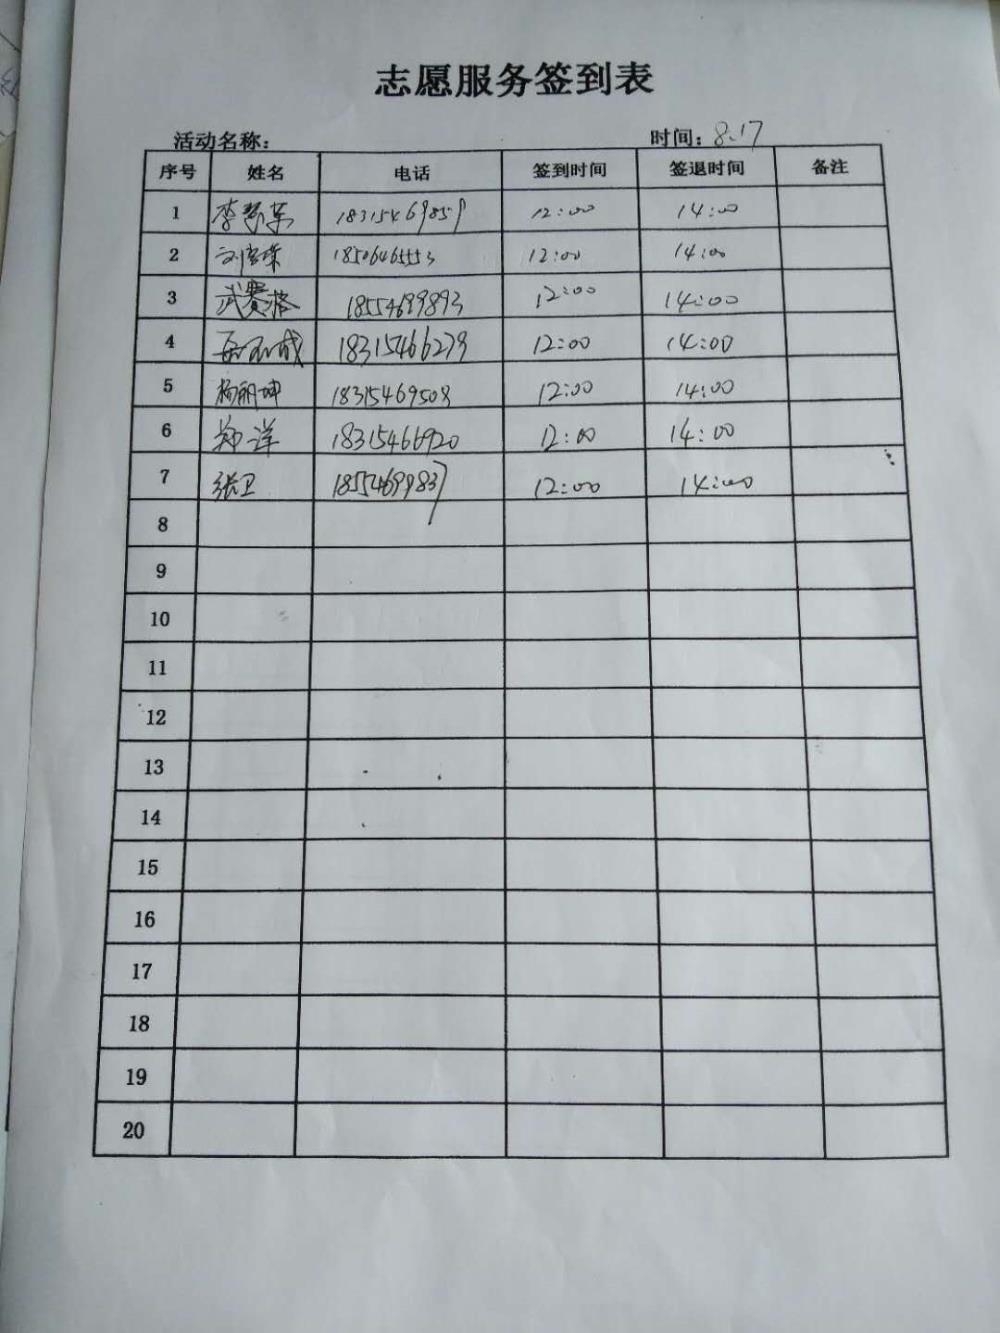 志愿服务签到表
活动名称: 时间: 8.17
序号 姓名 电话 签到时间 签退时间 备注
1 李 18315469859 12:00 14:00
2 刘 18506465553 12:00 14:00
3 武赛格 18554689893 12:00 14:00
4 成 18315466279 12:00 14:00
5 杨丽坤 18315469508 12:00 14:00
6 郑洋 18315466920 12:00 14:00
7 张卫 18554699837 12:00 14:00
8
9
10
11
12
13
14
15
16
17
18
19
20